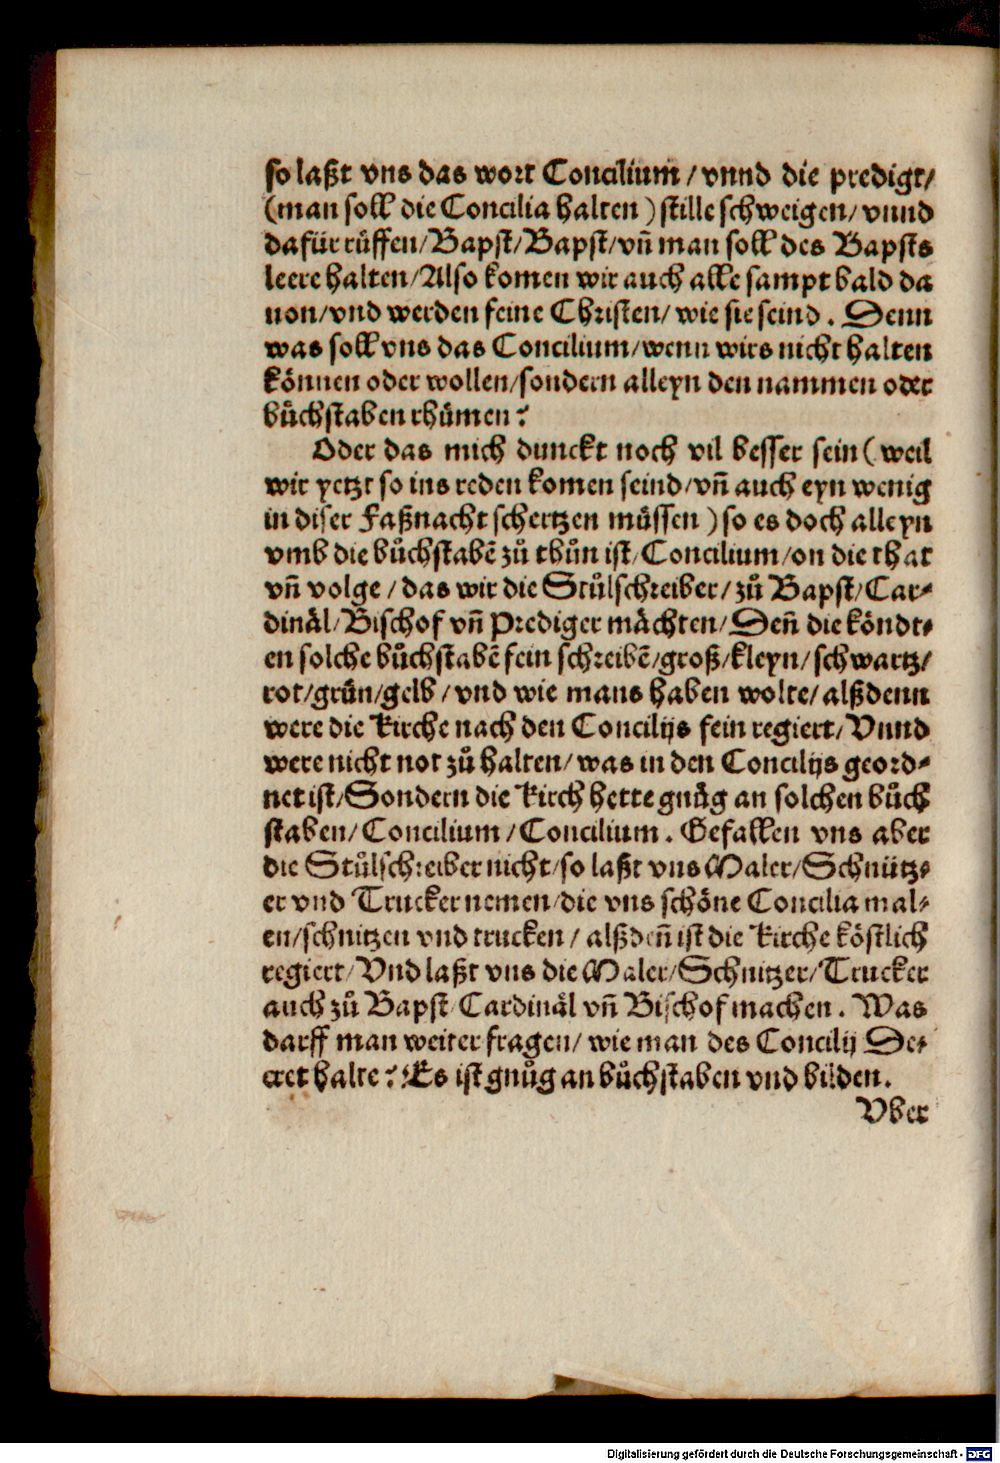 so laßt vns das wort Concilium / vnnd die predigt /
(man soll die Concilia halten ) stille schweigen / vnnd
dafür rüffen / Bapst / Bapst / vñ man soll des Bapsts
leere halten / Also komen wir auch alle sampt bald da
uon / vnd werden feine Christen / wie sie seind . Denn
was soll vns das Concilium / wenn wirs nicht halten
können oder wollen / sondern alleyn den nammen oder
bůchstaben rhümen ?
Oder das mich dunckt noch vil besser sein ( weil
wir yetzt so ins reden komen seind / vñ auch eyn wenig
in diser Faßnacht schertzen müssen ) so es doch alleyn
vmb die bůchstabē zů thůn ist / Concilium / on die that
vñ volge / das wir die Stůlschreiber / zů Bapst / Car⸗
dinäl / Bischof vñ Prediger mächten / Deñ die köndt⸗
en solche bůchstabē fein schreibē / groß / kleyn / schwartz /
rot / grün / gelb / vnd wie mans haben wolte / alßdenn
were die Kirche nach den Concilijs fein regiert / Vnnd
were nicht not zů halten / was in den Concilijs geord⸗
net ist / Sondern die Kirch hette gnůg an solchen bůch
staben / Concilium / Concilium . Gefallen vns aber
die Stůlschreiber nicht / so laßt vns Maler / Schnütz⸗
er vnd Trucker nemen / die vns schöne Concilia mal⸗
en / schnitzen vnd trucken / alßdeñ ist die Kirche köstlich
regiert / Vnd laßt vns die Maler / Schnitzer / Trucker
auch zů Bapst / Cardinäl vñ Bischof machen . Was
darff man weiter fragen / wie man des Concilij De⸗
cret halte ? Es ist gnůg an bůchstaben vnd bilden .
Vber
Digitalisierung gefördert durch die Deutsche Forschungsgemeinschaft - DFG